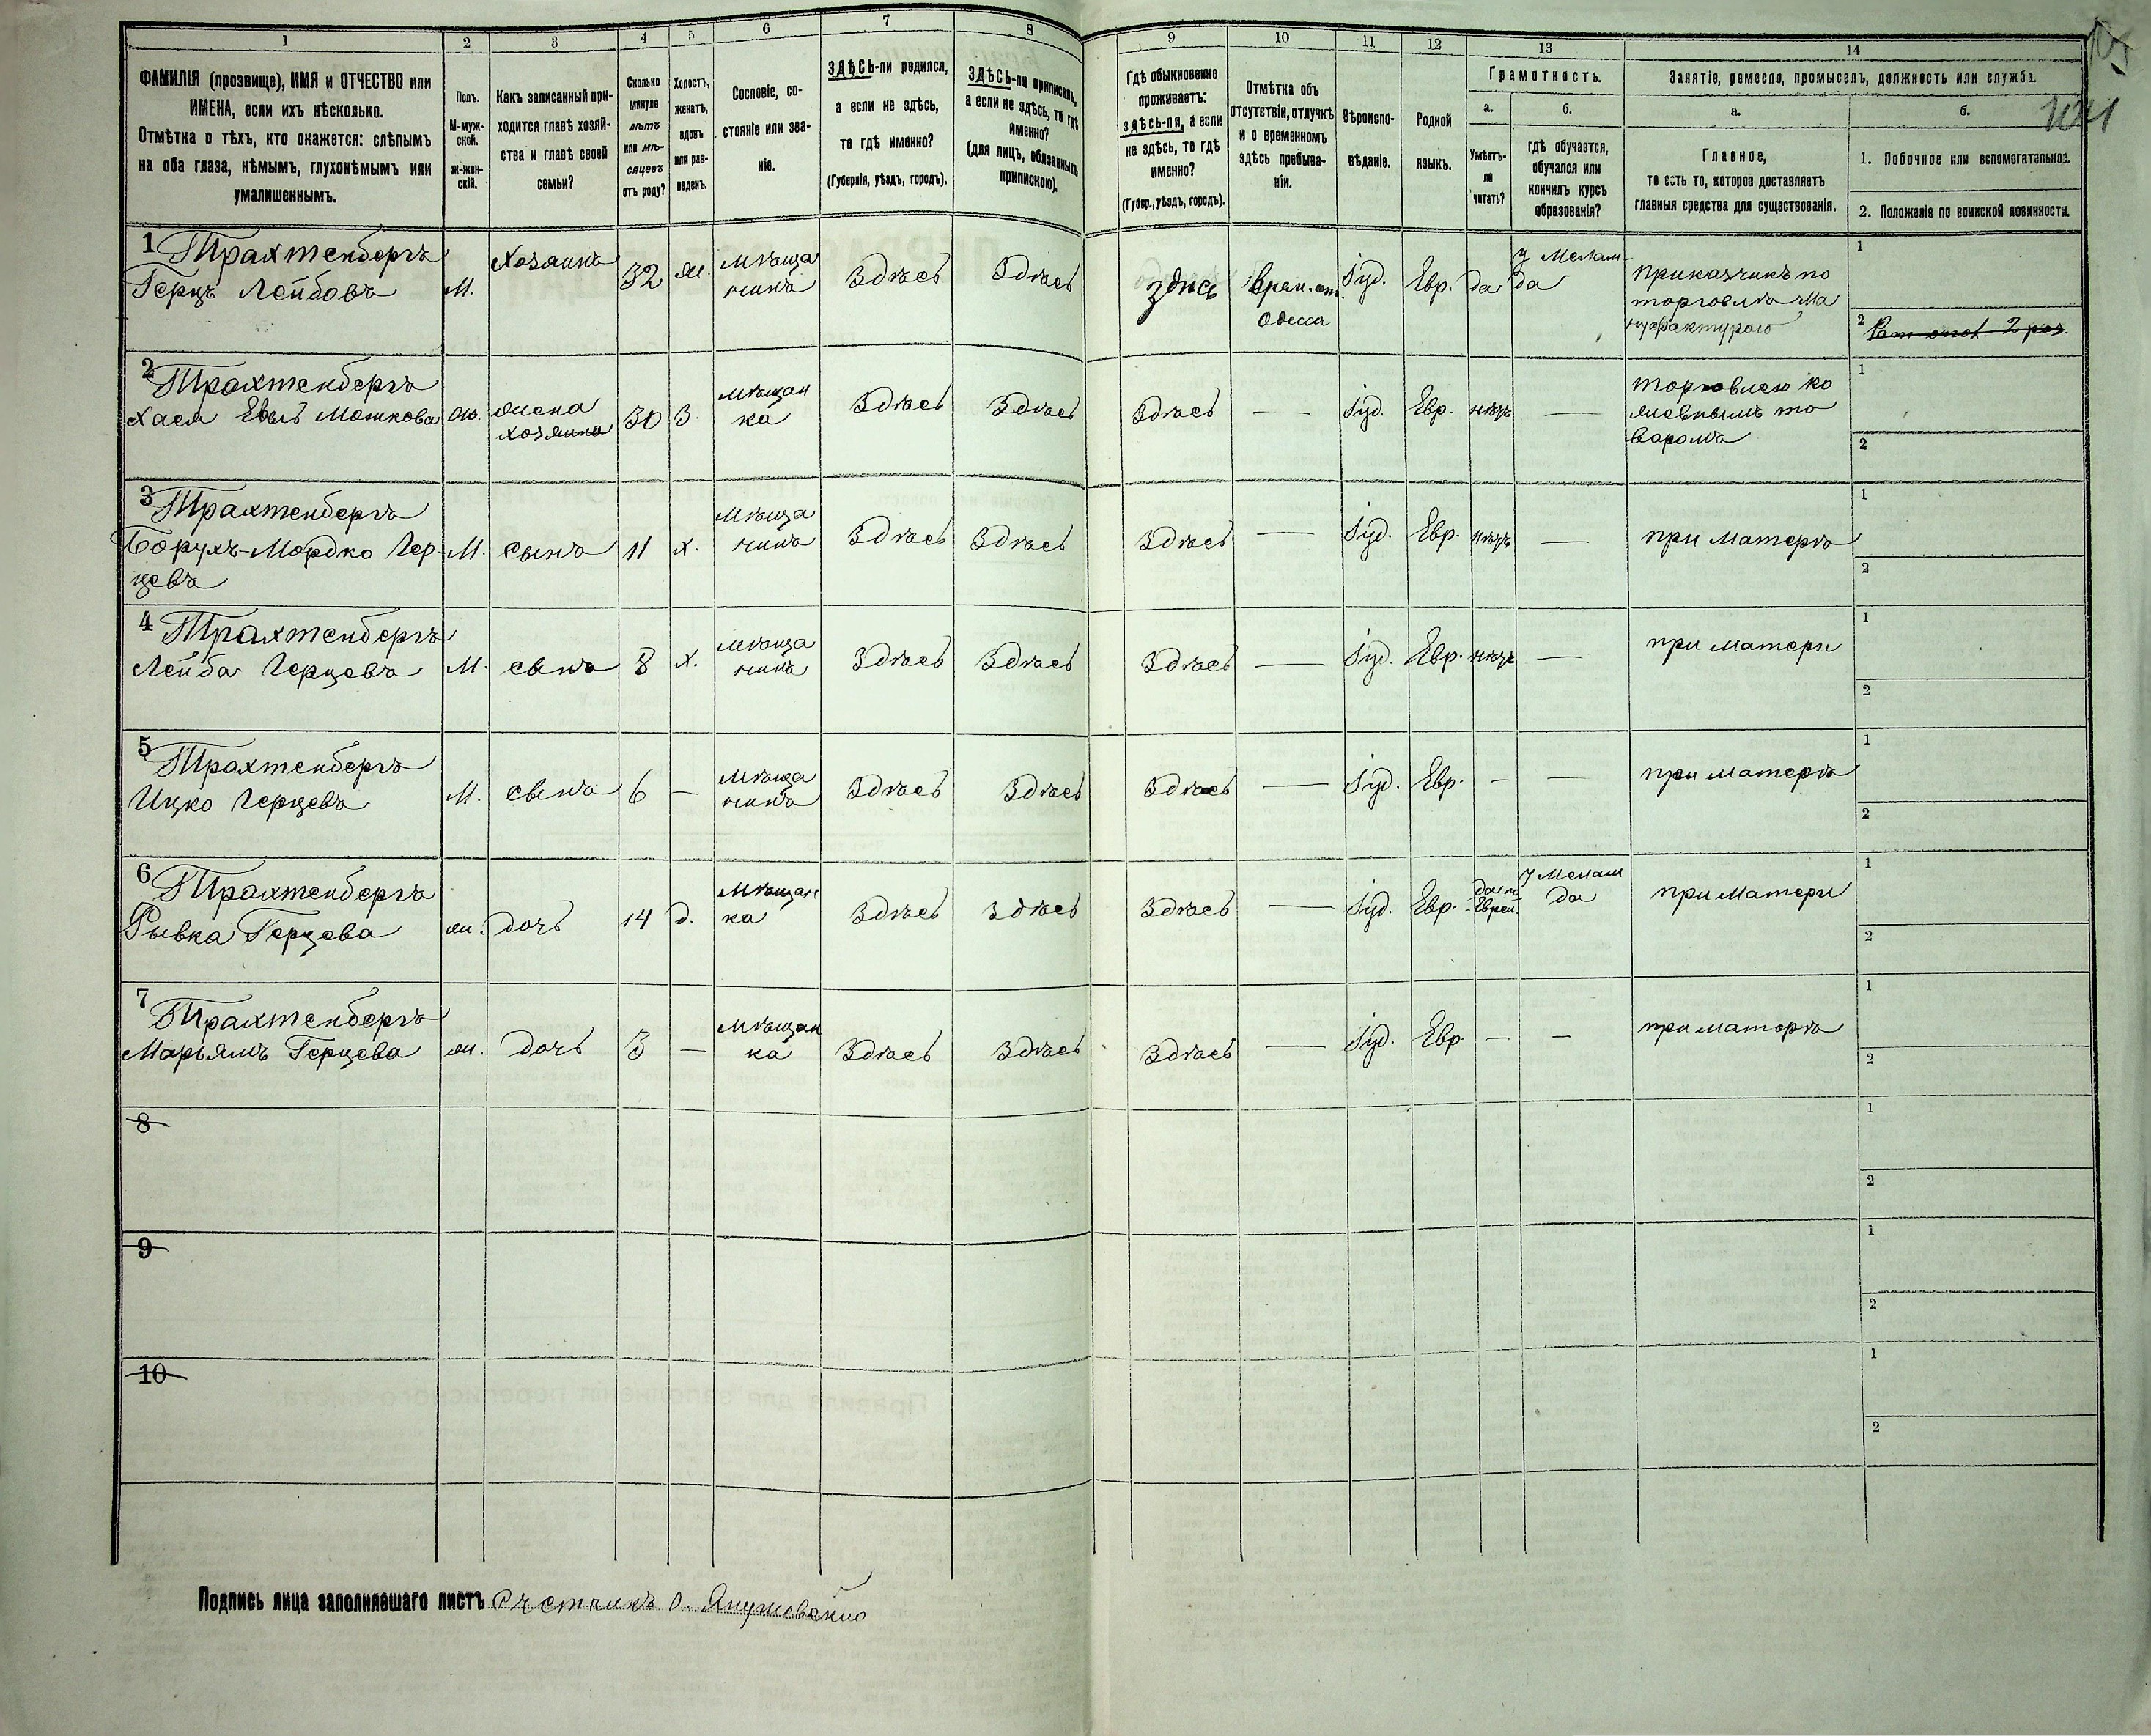 1 2 3 4 5 6 7 8 9 10 11 12 13 14
ФАМИЛІЯ (прозвище), ИМЯ и ОТЧЕСТВО или
ИМЕНА, если ихъ нѣсколько.
Отмѣтка о тѣхъ, кто окажется: слѣпымъ
на оба глаза, нѣмымъ, глухонѣмымъ или
умалишеннымъ.
Полъ.
М-муж-
ской.
ж-жен-
скій.
Какъ записанный при-
ходится главѣ хозяй-
ства и главѣ своей
семьи?
Сколько
минуло
лѣтъ
или мѣ-
сяцевъ
отъ роду?
Холостъ,
женатъ,
вдовъ
или раз-
веденъ.
Сословіе, со-
стояніе или зва-
ніе.
ЗДѢСЬ-ли родился,
а если не здѣсь,
то гдѣ именно?
(Губернія, уѣздъ, городъ).
ЗДѢСЬ-ли приписанъ,
а если не здѣсь, то гдѣ
именно?
(для лицъ, обязанныхъ
припискою).
Гдѣ обыкновенно
проживаетъ:
здѣсь-ли, а если
не здѣсь, то гдѣ
именно?
(Губер., уѣздъ, городъ).
Отмѣтка объ
отсутствіи, отлучкѣ
и о временномъ
здѣсь пребыва-
ніи.
Вѣроиспо-
вѣданіе.
Родной
языкъ.
Грамотность.
а.
Умѣетъ-
ли
читать?
б.
гдѣ обучается,
обучался или
кончилъ курсъ
образованія?
Занятіе, ремесло, промыселъ, должность или служба.
а.
Главное,
то есть то, которое доставляетъ
главныя средства для существованія.
б.
1. Побочное или вспомогательное.
2. Положеніе по воинской повинности.
1 Трахтенбергъ
Герцъ Лейбовъ
М.
Хозяинъ
32
ж.
Мѣща
нинъ
Здѣсь
Здѣсь
здѣсь
Врем. от.
Одесса
Iуд.
Евр.
да
у Мелам-
да
приказчикъ по
торговлѣ ма
нуфактурою
1
2
2 Трахтенбергъ
Хася Мошкова
ж.
жена
хозяина
30
З.
Мѣщан
ка
Здѣсь
Здѣсь
Здѣсь
—
Iуд.
Евр.
нѣтъ
—
торговлею ко
жевнымъ то
варомъ
1
2
3 Трахтенбергъ
Борухъ-Мордко Гер-
цевъ
М.
сынъ
11
х.
Мѣща
нинъ
Здѣсь
Здѣсь
Здѣсь
—
Iуд.
Евр.
нѣтъ
—
при матерѣ
1
2
4 Трахтенбергъ
Лейба Герцовъ
М.
сынъ
8
х.
Мѣща
нинъ
Здѣсь
Здѣсь
Здѣсь
—
Iуд.
Евр.
нѣтъ
—
при матери
1
2
5 Трахтенбергъ
Ицко Герцевъ
М.
сынъ
6
—
Мѣща
нинъ
Здѣсь
Здѣсь
Здѣсь
—
Iуд.
Евр.
—
—
при матерѣ
1
2
6 Трахтенбергъ
Рывка Герцова
ж.
дочь
14
д.
Мѣщан
ка
Здѣсь
Здѣсь
Здѣсь
—
Iуд.
Евр.
да по
Еврей.
у Мелам
да
при матери
1
2
7 Трахтенбергъ
Марьямъ Герцова
ж.
дочь
3
—
Мѣщан
ка
Здѣсь
Здѣсь
Здѣсь
—
Iуд.
Евр.
—
—
при матерѣ
1
2
8
1
2
9
1
2
10
1
2
Подпись лица заполнявшаго листъ